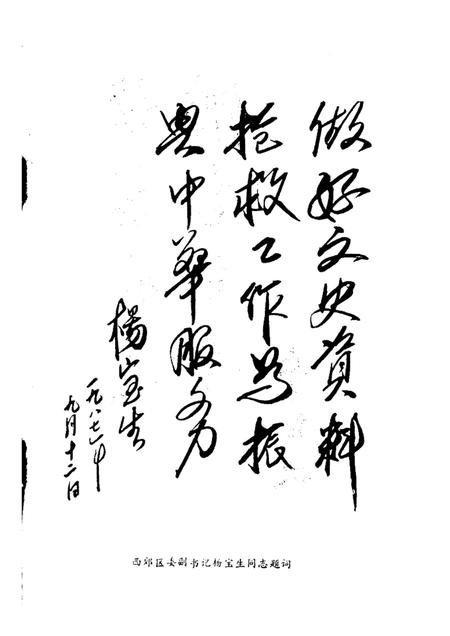 做好文史資料
抢救工作为振
兴中华服务
楊宝生
一九八七年
九月十二日
西郊区委副书记杨宝生同志题词